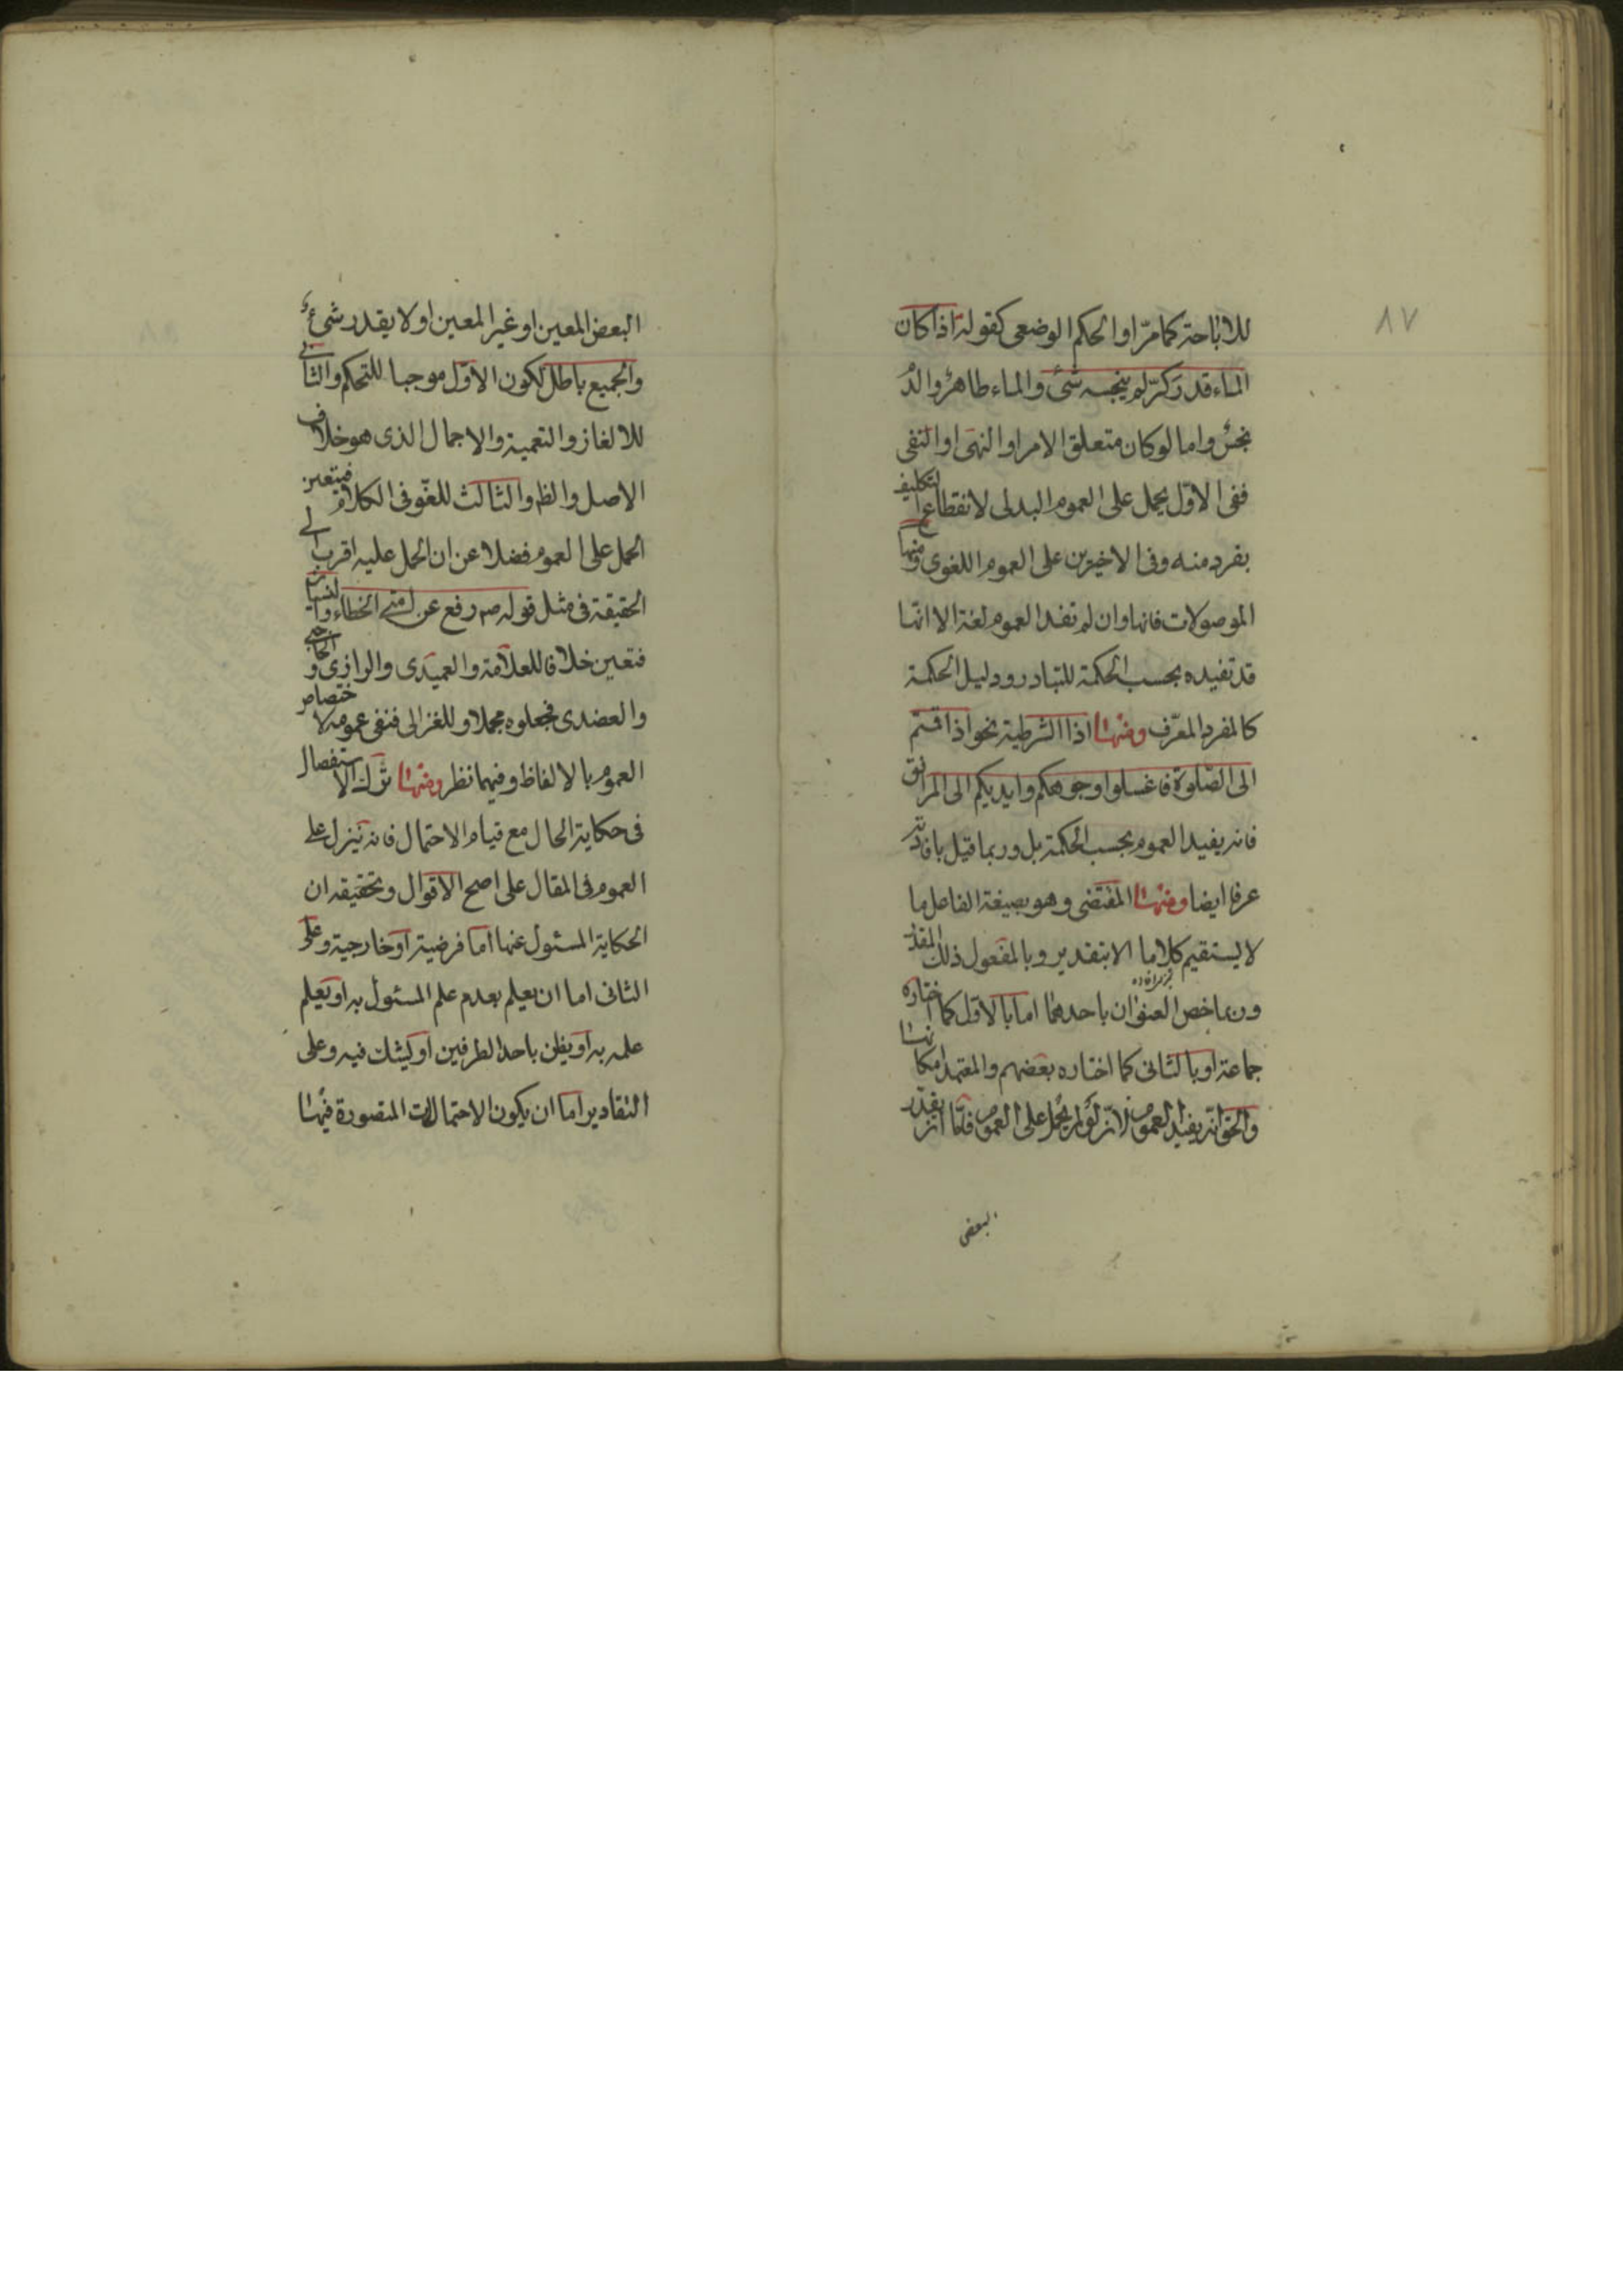 ٨٧
للاباحة كما مرّ او الحكم الوضعى كقوله اذا كان
الماء قدر كرّ لم ينجسه شئ والماء طاهر والدم
نجس واما لو كان متعلق الامر او النهى او النفى
ففى الاوّل يحمل على العموم البدلى لانقطاع التكليف
بفرد منه وفى الاخيرين على العموم اللغوى ومنها
الموصولات فانها وان لم تفد العموم لغة الا انّها
قد تفيده بحسب الحكمة للتبادر ودليل الحكمة
كالمفرد المعرّف ومنها اذا الشرطية نحو اذا قمتم
الى الصّلوة فاغسلوا وجوهكم وايديكم الى المرافق
فانه يفيد العموم بحسب الحكمة بل وربما قيل بافادته
عرفا ايضا ومنها المقتضى وهو بصيغة الفاعل ما
لا يستقيم كلاما الا بتقدير وبالمفعول ذلك المقدر
وربما خص العنوان باحدهما اما بالاوّل كما اختاره
جماعة او بالثانى كما اختاره بعضهم والمعتمد امكانهما
والحق انّه يفيد العموم لانّه لو لم يحمل على العموم فامّا ان يقدّر
البعض
البعض المعين او غير المعين او لا يقدر شئ
والجميع باطل لكون الاوّل موجبا للتحكم والثانى
للالغاز والتعمية والاجمال الذى هو خلاف
الاصل والظ والثالث للغو فى الكلام فيتعين
الحمل على العموم فضلا عن ان الحمل عليه اقرب الى
الحقيقة فى مثل قوله ص رفع عن امتى الخطاء والنسيان
فتعين خلافا للعلامة والعميدى والرازى والحاجبى
والعضدى فجعلوه مجملا وللغزالى فنفى عمومه لاختصاص
العموم بالالفاظ وفيهما نظر ومنها ترك الاستفصال
فى حكاية الحال مع قيام الاحتمال فانه ينزل على
العموم فى المقال على اصح الاقوال وتحقيقه ان
الحكاية المسئول عنها اما فرضية او خارجية وعلى
الثانى اما ان يعلم بعدم علم المسئول به او يعلم
علمه به او يظن باحد الطرفين او يشك فيه وعلى
التقادير اما ان يكون الاحتمالات المتصورة فيها